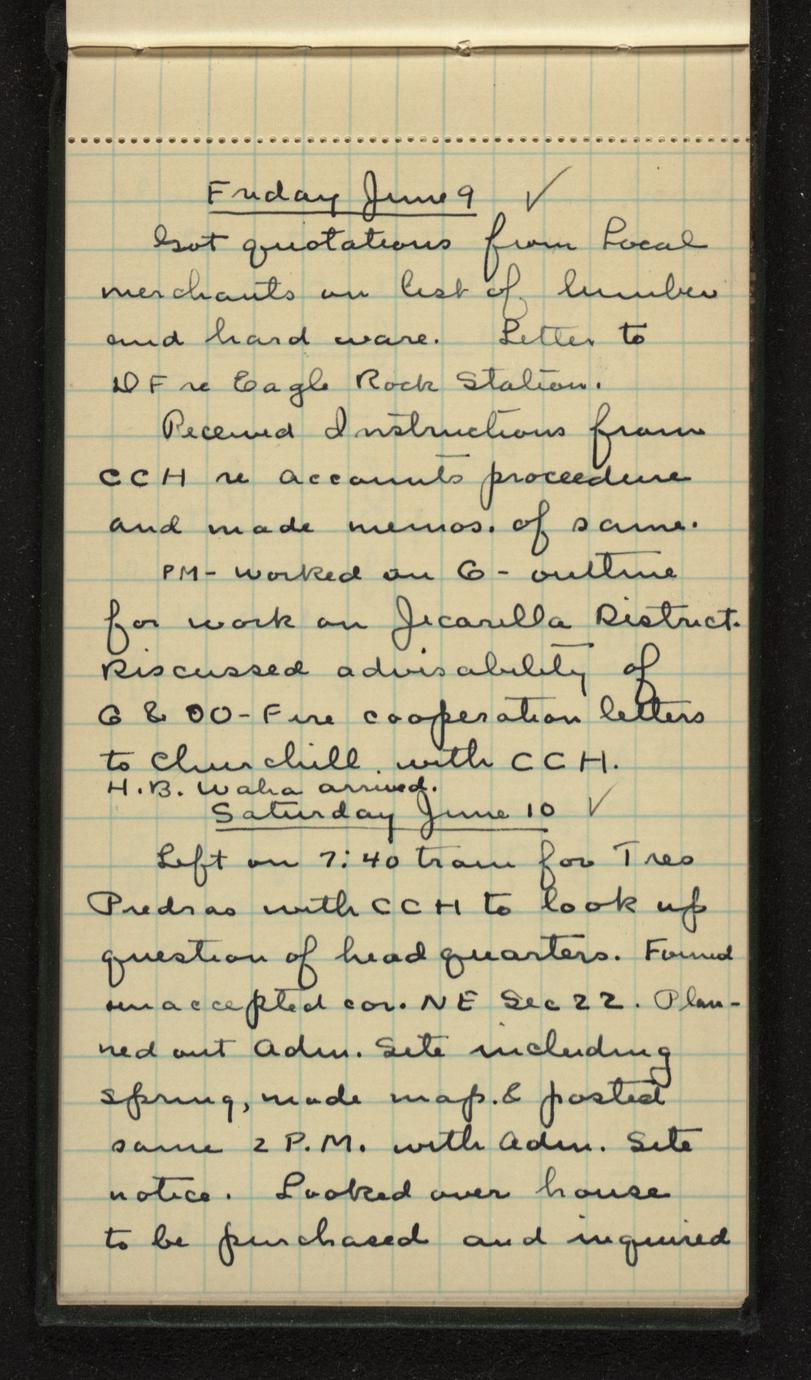 Friday June 9 ✓
Got quotations from Local
merchants on list of lumber
and hard ware. Letter to
DF re Eagle Rock Station.
Received Instructions from
CCH re accounts proceedure
and made memos. of same.
PM- Worked on G- outline
for work on Jicarilla District.
Discussed advisability of
G & OO-Fire cooperation letters
to Churchill with CCH.
H.B. Waha arrived.
Saturday June 10 ✓
Left on 7:40 train for Tres
Piedras with CCH to look up
question of head quarters. Found
unaccepted cor. NE Sec 22. Plan-
ned out Adm. Site including
spring, made map. & posted
same 2 P.M. with Adm. Site
notice. Looked over house
to be purchased and inquired